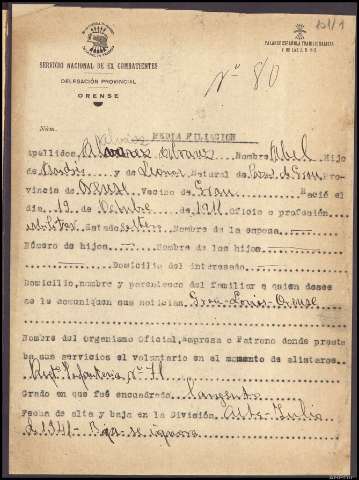 101/1
FALANGE ESPAÑOLA TRADICIONALISTA
Y DE LAS J. O. N-S
SERVICIO NACIONAL DE EX COMBATIENTES
DELEGACIÓN PROVINCIAL
ORENSE
Nº 80
Núm.
MEDIA FILIACION
Apellidos Alvarez Alvarez Nombre Abel Hijo
de y de Leonor Natural de de Grou Pro-
vincia de Orense Vecino de Grou Nació el
dia 19 de Octubre de 1911 Oficio o profesión
Estado Soltero Nombre de la esposa
Número de hijos Nombre de los hijos
Domicilio del interesado
Domicilio, nombre y parentesco del familiar a quien desea
se le comuniquen sus noticias Grou-Lovios-Orense
Nombre del Organismo Oficial, empresa o Patrono donde presta
ba sus servicios el voluntario en el momento de alistarse
Regtº Infanteria nº 71
Grado en que fué encuadrado Sargento
Fecha de alta y baja en la División Alta-Julio
de 1941- Baja-se ignora